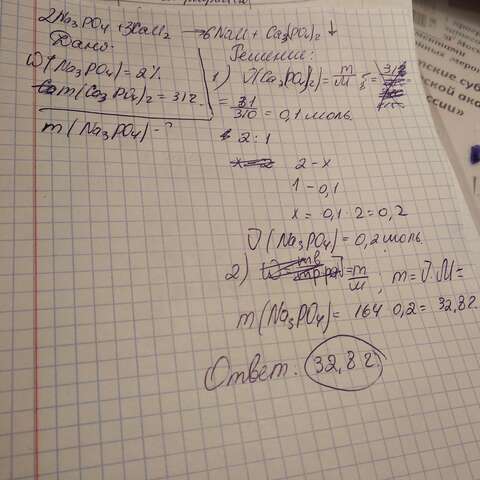 2Na₃PO₄ + 3CaCl₂ → 6NaCl + Ca₃(PO₄)₂ ↓
Дано:
W (Na₃PO₄) = 2%.
m(Ca₃(PO₄)₂ = 31г.
m (Na₃PO₄) - ?
Решение:
1) ν(Ca₃(PO₄)₂) = m/M
= 31/310 = 0,1 моль.
2:1
2 - x
1 - 0,1
x = 0,1 · 2 = 0,2
ν (Na₃PO₄) = 0,2 моль.
2) ν = m/M ; m = ν · M =
m (Na₃PO₄) = 164 · 0,2 = 32,8 г.
Ответ: 32,8 г.